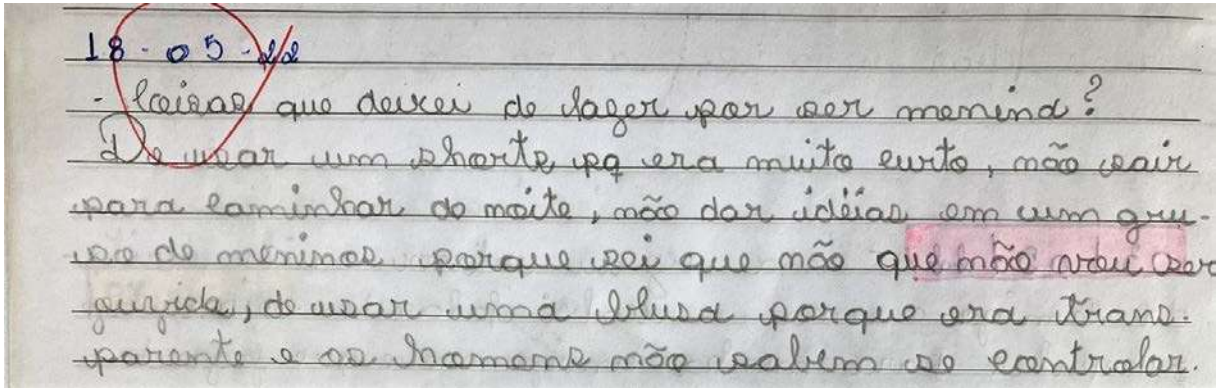 18-05-22
- Coisas que deixei de fazer por ser menina?
De usar um shorts pq era muito curto, não sair
para caminhar de noite, não dar idéias em um gru-
po de meninos porque sei que não que não vou ser
ouvida, de usar uma blusa porque era trans-
parente e os homens não sabem se controlar.